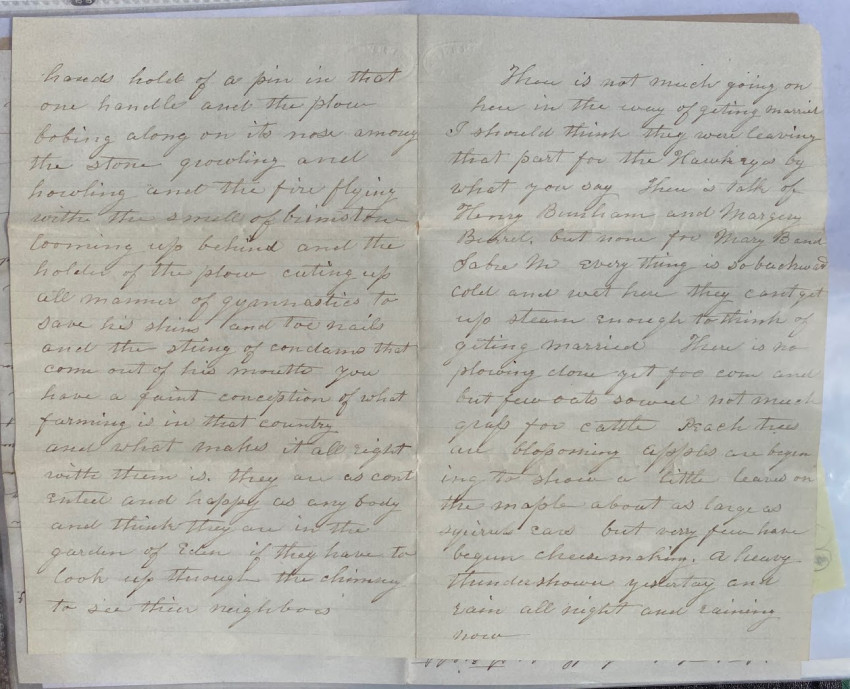 hands hold of a pin in that
one handle and the plow
bobing along on its nose among
the stone growling and
howling and the fire flying
withe the smell of brimstone
looming up behind and the
holder of the plow cuting up
all manner of gymnastics to
save his shins and toe nails
and the string of condams that
come out of his mouth you
have a faint conception of what
farming is in that country
and what makes it all right
with them is. they are as cont
ented and happy as any body
and think they are in the
garden of Eden if they have to
look up through the chimney
to see their neighbors
There is not much going on
here in the way of geting married
I should think they were leaving
that part for the Hawkeyes by
what you say There is talk of
Henry and Margery
but none for Mary
every thing is so backward
cold and wet here they cant get
up steam enough to think of
geting married There is no
plowing done yet for corn and
but few oats sowed not much
grass for cattle Peach trees
are blossoming apples are begin
ing to show a little leaves on
the maple about as large as
squirels ears but very few have
begun cheese making. A heavy
thundershower yesertay and
rain all night and raining
now